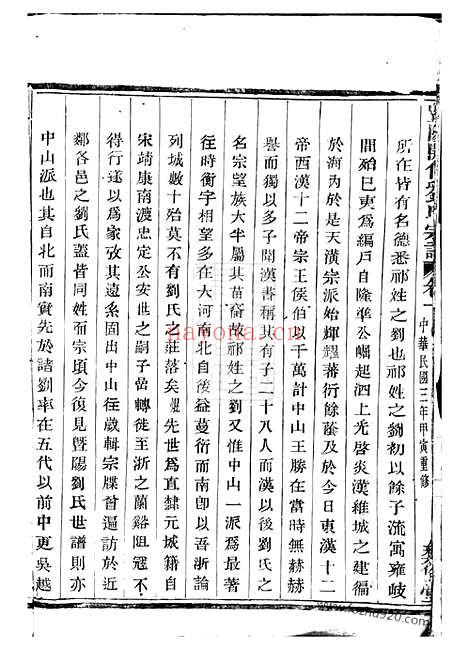 所在皆有名德悉祁姓之劉也祁姓之劉初以餘子流寓雍岐
間始已更為編戶自隆準公崛起泗上光啓炎漢維城之建徧
於海內於是天潢宗派始輝耀蕃衍餘蔭及於今日東漢十二
帝西漢十二帝宗王侯伯以千萬計中山王勝在當時無赫赫
譽而獨以多子聞漢書稱其有子二十八人而漢以後劉氏之
名宗望族大半屬其苗裔故祁姓之劉又惟中山一派為最著
往時衡宇相望多在大河南北自後益蔓衍而南卽以吾浙論
列城數十殆莫不有劉氏之莊落矣先世為直隸元城籍自
宋靖康南渡忠定公安世之嗣子嵒轉徙至浙之蘭谿阻寇不
得行遂以為家攷其遠系固出中山往歲輯宗牒曾遍訪於近
鄰各邑之劉氏蓋皆同姓而宗頃今復見暨陽劉氏世譜則亦
中山派也其自北而南實先於諸劉率在五代以前中更吳越
宗譜
卷一
中華民國三年甲寅重修
堂
hanona.com
www.kozha920.com